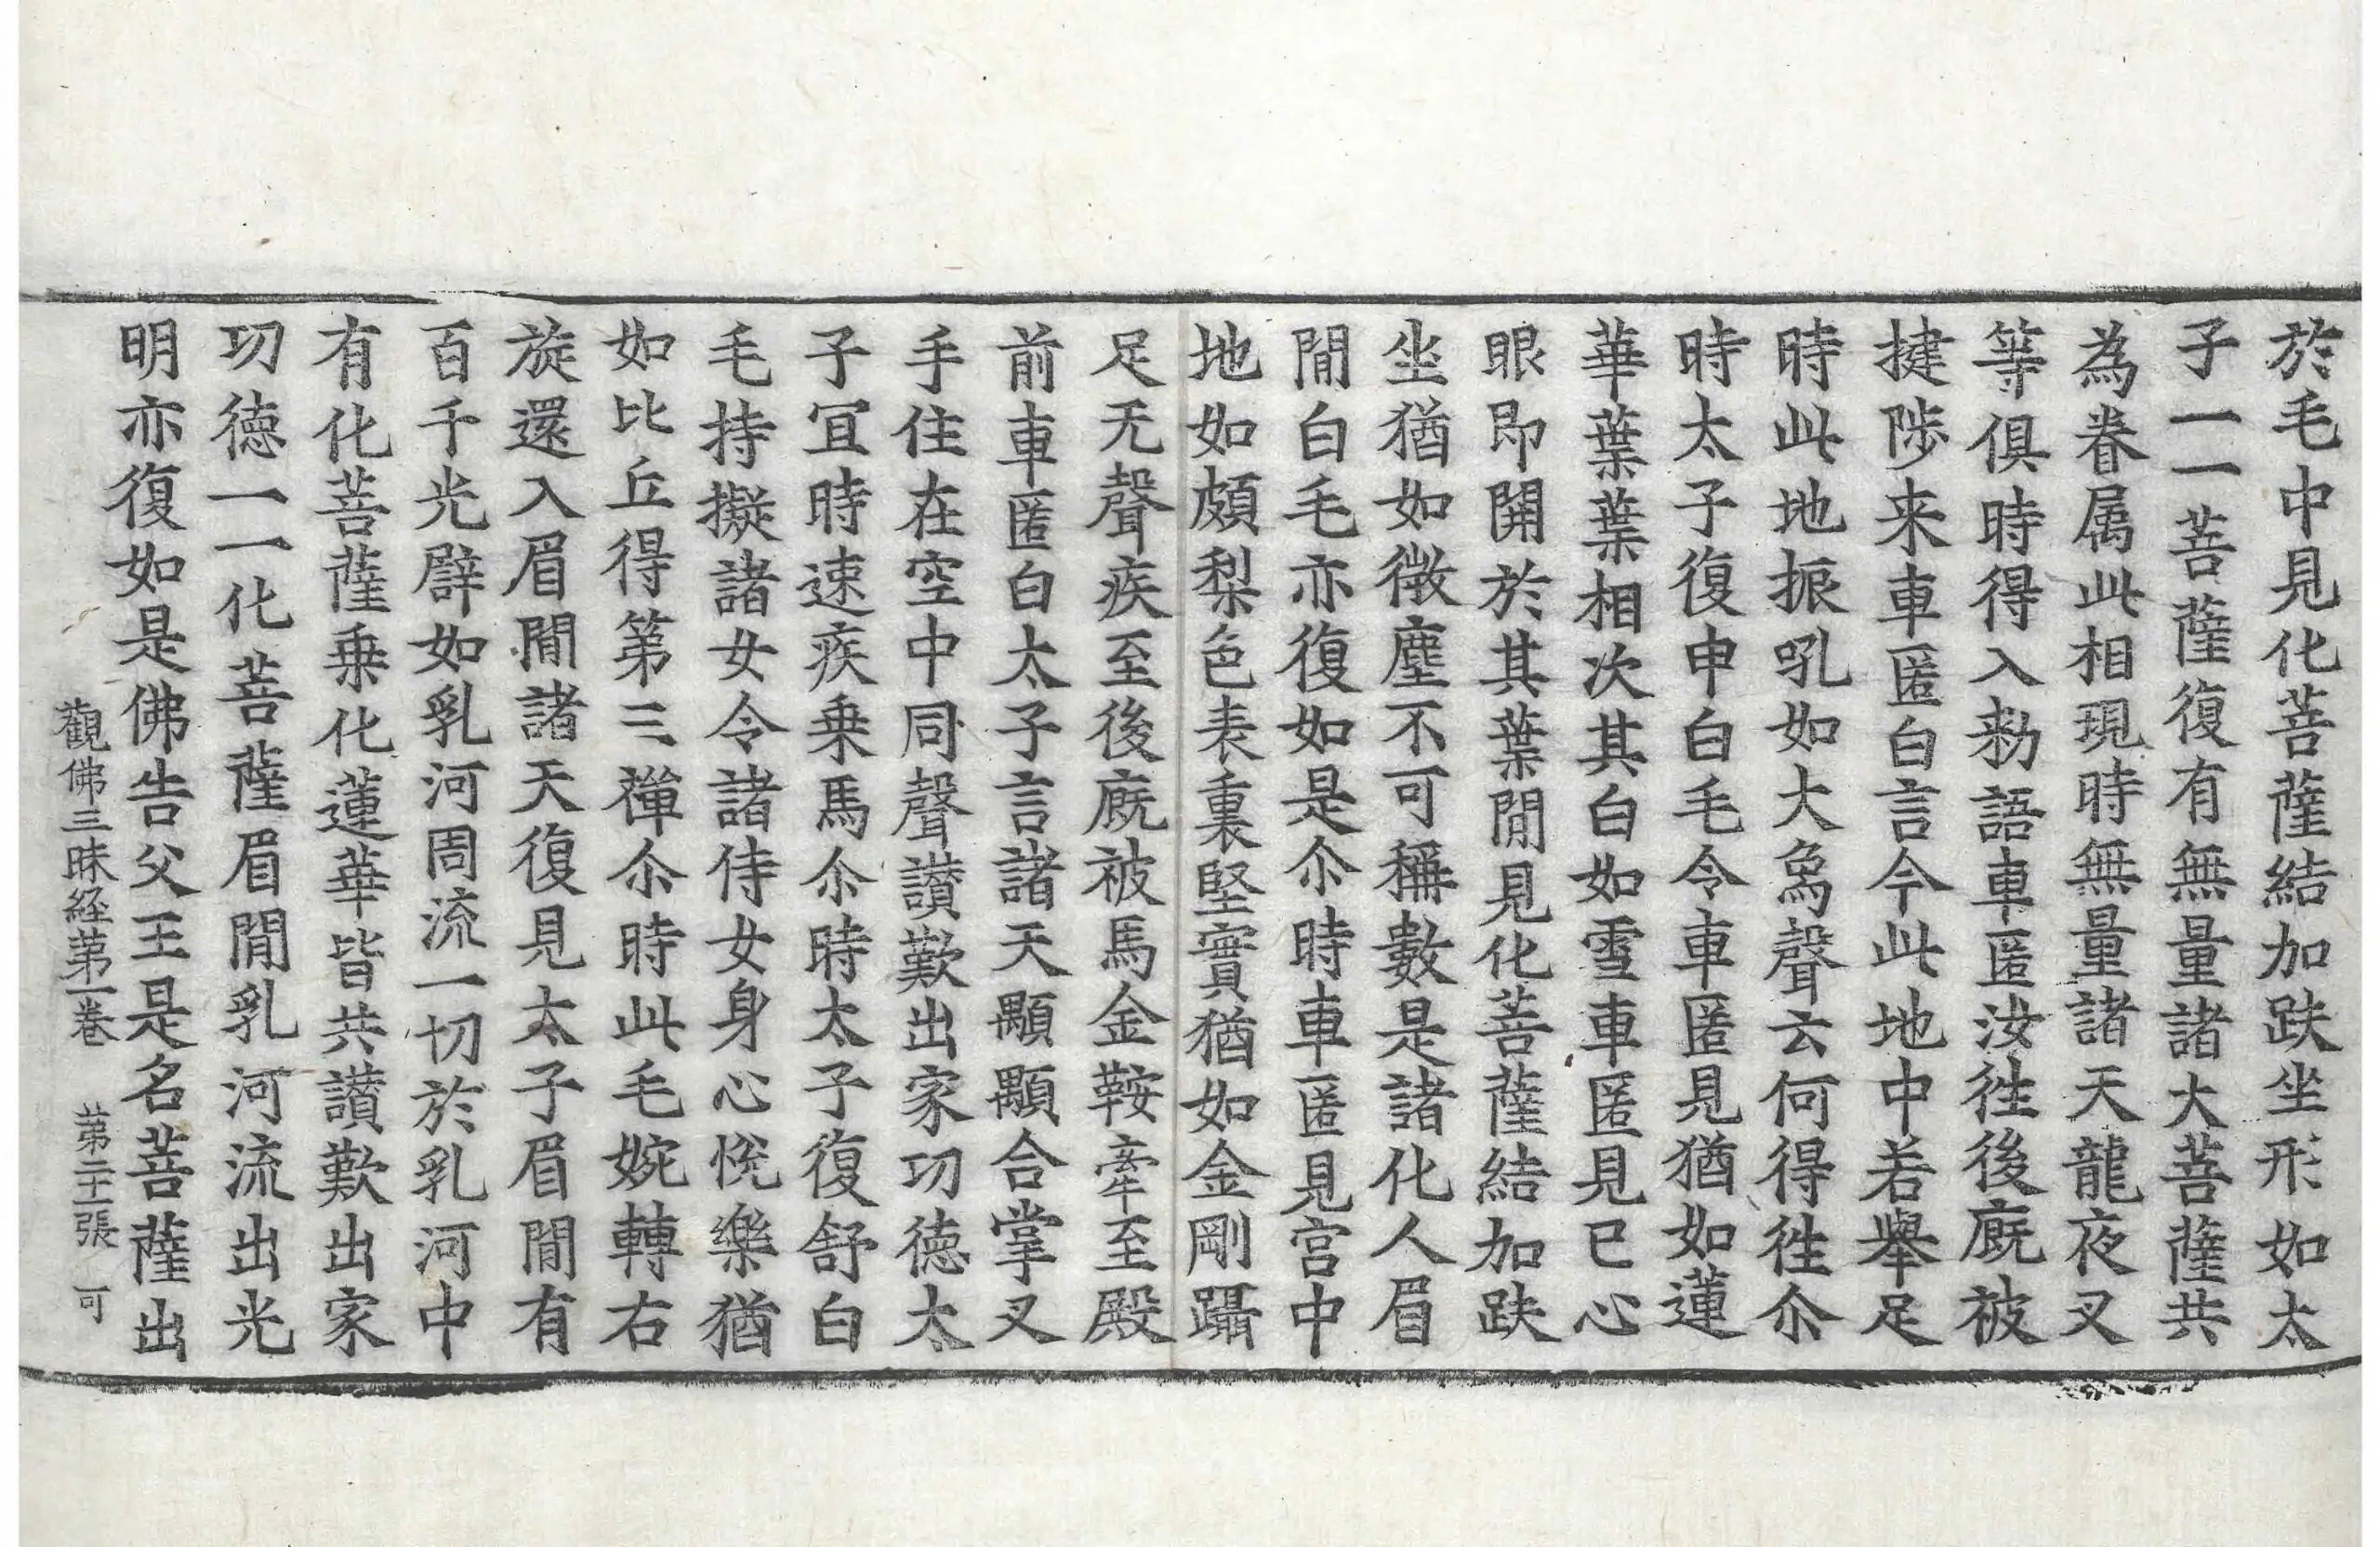 於毛中見化菩薩結加趺坐形如太
子一一菩薩復有無量諸大菩薩共
為眷属此相現時無量諸天龍夜叉
等俱時得入勑語車匿汝徃後廐被
揵陟来車匿白言今此地中若舉足
時此地振吼如大為聲云何得徃尒
時太子復申白毛令車匿見猶如蓮
華葉葉相次其白如雪車匿見已心
眼即開於其葉閒見化菩薩結加趺
坐猶如微塵不可稱數是諸化人眉
閒白毛亦復如是尒時車匿見宫中
地如頗梨色表裏堅實猶如金剛躡
足无聲疾至後廐被馬金鞍牽至殿
前車匿白太子言諸天顒顒合掌叉
手住在空中同聲讃歎出家功徳太
子宜時速疾乗馬尒時太子復舒白
毛持擬諸女令諸侍女身心恱樂猶
如比丘得第三禪尒時此毛婉轉右
旋還入眉閒諸天復見太子眉閒有
百千光辟如乳河周流一切於乳河中
有化菩薩乗化蓮華皆共讃歎出家
功徳一一化菩薩眉閒乳河流出光
明亦復如是佛告父王是名菩薩出
觀佛三昧経第一卷 第二十二張 可